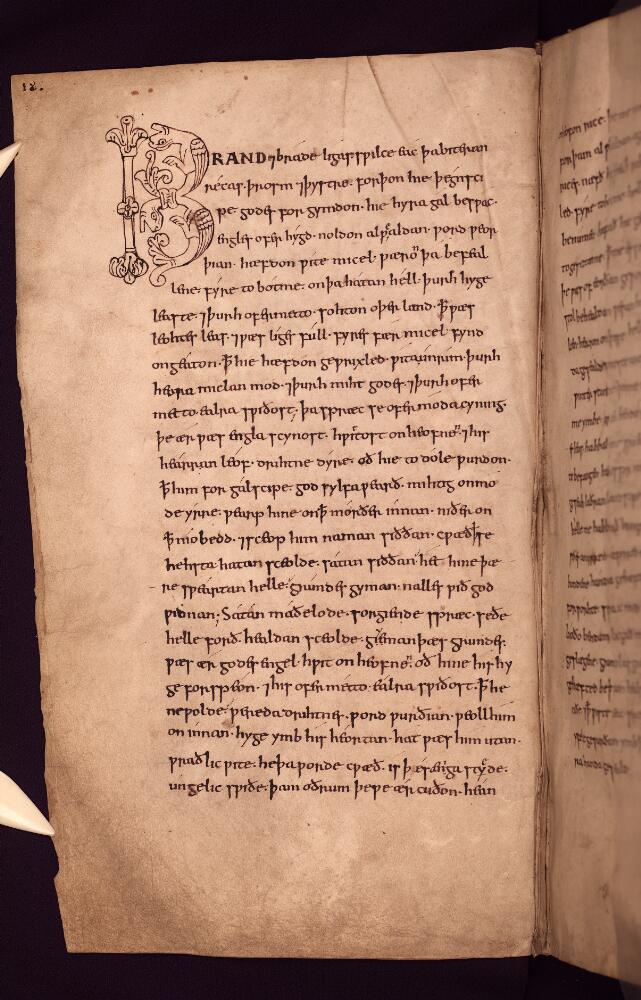 18.
BRAND ⁊ brade ligas swilce eac þa biteran
recas. þrosm ⁊ þystro. forþon hie þegnsci
pe godes forgymdon. hie hyra gal beswac.
engles oferhygd. noldon alwaldan. word weor
þian. hæfdon wite micel. wæron þa befeal
lene. fyre to botme. on þa hatan hell. þurh hyge
leaste. ⁊ þurh ofermetto. sohton oþer land. ꝥ wæs
leohtes leas. ⁊ wæs liges full. fyres fær micel fynd
ongeaton. ꝥ hie hæfdon gewrixled. wita unrim. þurh
heora miclan mod. ⁊ þurh miht godes. ⁊ þurh ofer
metto. ealra swiðost. þa spræc se ofermoda cyning.
þe ær wæs engla scynost. hwitost on heofne. ⁊ his
hearran leof. drihtne dyre. oð hie to dole wurdon.
ꝥ him for galscipe. god sylfa wearð. mihtig on mo
de yrre. wearp hine on ꝥ morðer innan. niðer on
ꝥ niobedd. ⁊ sceop him naman siððan. cwæð se
hehsta hatan sceolde. satan siððan. het hine þæ
re sweartan helle. grundes gyman. nalles wið god
winnan; Satan maðelode. sorgiende spræc. se ðe
helle forð. healdan sceolde. gieman þæs grundes.
wæs ær godes engel. hwit on heofne. oð hine his hy
ge forspeon. ⁊ his ofermetto. ealra swiðost. ꝥ he
ne wolde. wereda drihtnes. word wurðian. weoll him
on innan. hyge ymb his heortan. hat wæs him utan.
wraðlic wite. he þa worde cwæð. is þæs ænga styde.
ungelic swiðe. þam oðrum þe we ær cuðon. hean